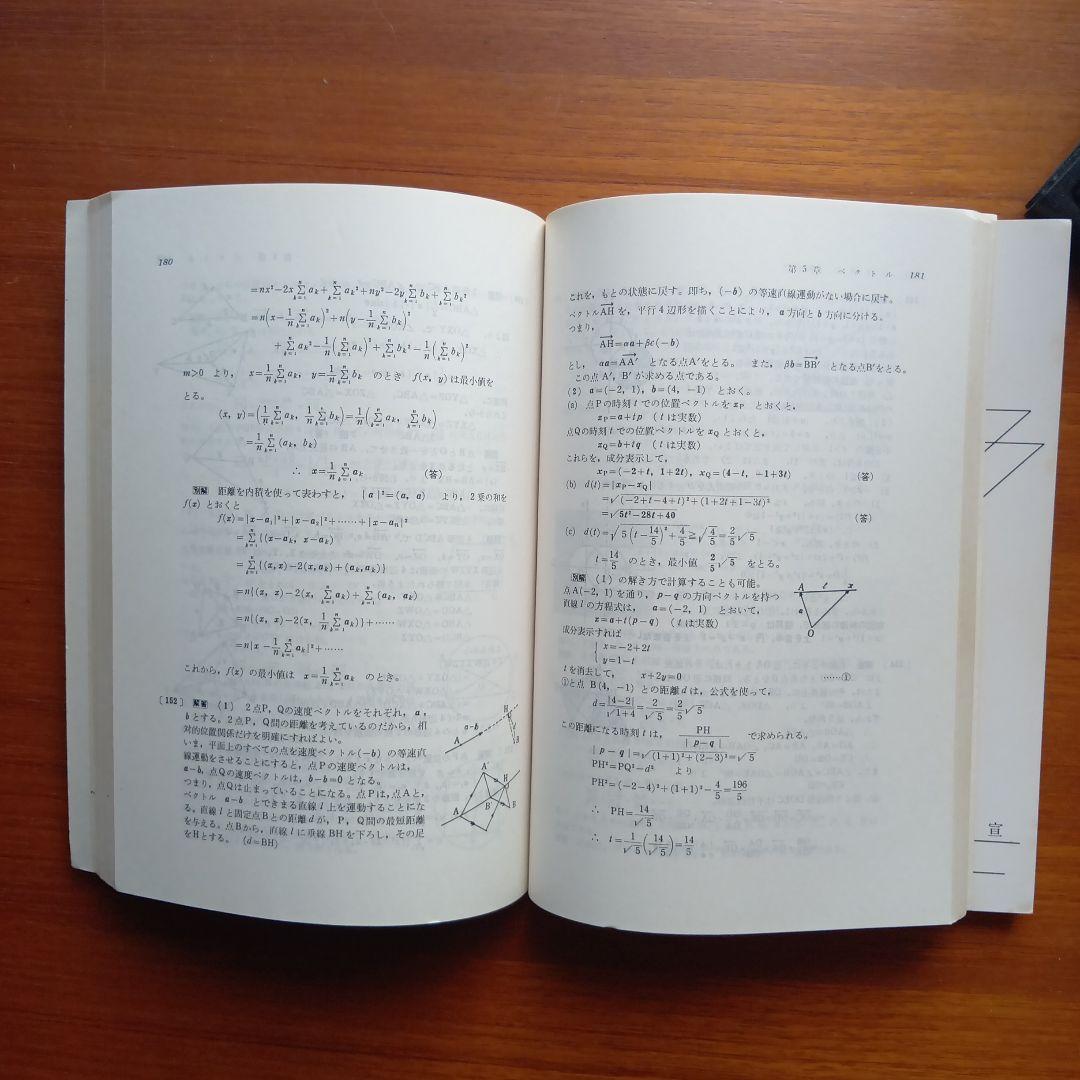 180
=nx²−2x∑ₖ₌₁ⁿaₖ+∑ₖ₌₁ⁿaₖ²+ny²−2y∑ₖ₌₁ⁿbₖ+∑ₖ₌₁ⁿbₖ²
=n(x−1/n∑ₖ₌₁ⁿaₖ)²+n(y−1/n∑ₖ₌₁ⁿbₖ)²
+∑ₖ₌₁ⁿaₖ²−1/n(∑ₖ₌₁ⁿaₖ)²+∑ₖ₌₁ⁿbₖ²−1/n(∑ₖ₌₁ⁿbₖ)²
m>0 より, x=1/n∑ₖ₌₁ⁿaₖ, y=1/n∑ₖ₌₁ⁿbₖ のとき f(x, y)は最小値を
とる。
(x, y)=(1/n∑ₖ₌₁ⁿaₖ, 1/n∑ₖ₌₁ⁿbₖ)=1/n(∑ₖ₌₁ⁿaₖ, ∑ₖ₌₁ⁿbₖ)
=1/n∑ₖ₌₁ⁿ(aₖ, bₖ)
∴ x=1/n∑ₖ₌₁ⁿaₖ (答)
別解 距離を内積を使って表わすと, |a|²=(a, a) より, 2乗の和を
f(x) とおくと
f(x)=|x−a₁|²+|x−a₂|²+……+|x−aₙ|²
=∑ₖ₌₁ⁿ{(x−aₖ, x−aₖ)
=∑ₖ₌₁ⁿ{(x,x)−2(x,aₖ)+(aₖ,aₖ)}
=n{(x, x)−2(x, ∑ₖ₌₁ⁿaₖ)+∑ₖ₌₁ⁿ(aₖ, aₖ)
=n{(x, x)−2(x, 1/n∑ₖ₌₁ⁿaₖ)}+……
=n|x−1/n∑ₖ₌₁ⁿaₖ|²+……
これから, f(x) の最小値は x=1/n∑ₖ₌₁ⁿaₖ のとき。
[152] 解答 (1) 2点P, Qの速度ベクトルをそれぞれ, a,
bとする。2点P, Q間の距離を考えているのだから, 相
対的位置関係だけを明確にすればよい。
いま, 平面上のすべての点を速度ベクトル(−b) の等速直
線運動をさせることにすると, 点Pの速度ベクトルは,
a−b, 点Qの速度ベクトルは, b−b=0 となる。
つまり, 点Qは止まっていることになる。点Pは, 点Aと,
ベクトル a−b とできまる直線l上を運動することにな
る。直線lと固定点Bとの距離dが, P, Q間の最短距離
を与える。点Bから, 直線lに垂線BHを下ろし, その足
をHとする。 (d=BH)
a−b
H
l
A
B
A′
H
B′
B
A
第5章 ベクトル 181
これを, もとの状態に戻す。即ち, (−b) の等速直線運動がない場合に戻す。
ベクトルAH→を, 平行4辺形を描くことにより, a方向とb方向に分ける。
つまり,
AH→=αa+βc(−b)
とし, αa=AA′→ となる点A′をとる。 また, βb=BB′→ となる点B′をとる。
この点A′, B′が求める点である。
(2) a=(−2, 1), b=(4, −1) とおく。
(a) 点Pの時刻tでの位置ベクトルを xP とおくと,
xP=a+tp (tは実数)
点Qの時刻tでの位置ベクトルを xQ とおくと,
xQ=b+tq (tは実数)
これらを, 成分表示して,
xP=(−2+t, 1+2t), xQ=(4−t, −1+3t) (答)
(b) d(t)=|xP−xQ|
=√(−2+t−4+t)²+(1+2t+1−3t)²
=√5t²−28t+40 (答)
(c) d(t)=√5(t−14/5)²+4/5≧√4/5=2/5√5
t=14/5 のとき, 最小値 2/5√5 をとる。
別解 (1) の解き方で計算することも可能。
点A(−2, 1)を通り, p−qの方向ベクトルを持つ
直線lの方程式は, a=(−2, 1) とおいて,
x=a+t(p−q) (tは実数)
成分表示すれば
{x=−2+2t
y=1−t
tを消去して, x+2y=0 ……①
①と点 B(4, −1) との距離dは, 公式を使って,
d=|4−2|/√1+4=2/√5=2/5√5
この距離になる時刻tは, PH/|p−q| で求められる。
|p−q|=√(1+1)²+(2−3)²=√5
PH²=PQ²−d² より
PH²=(−2−4)²+(1+1)²−4/5=196/5
∴ PH=14/√5
∴ t=1/√5(14/√5)=14/5
A
l
x
a
O
宣